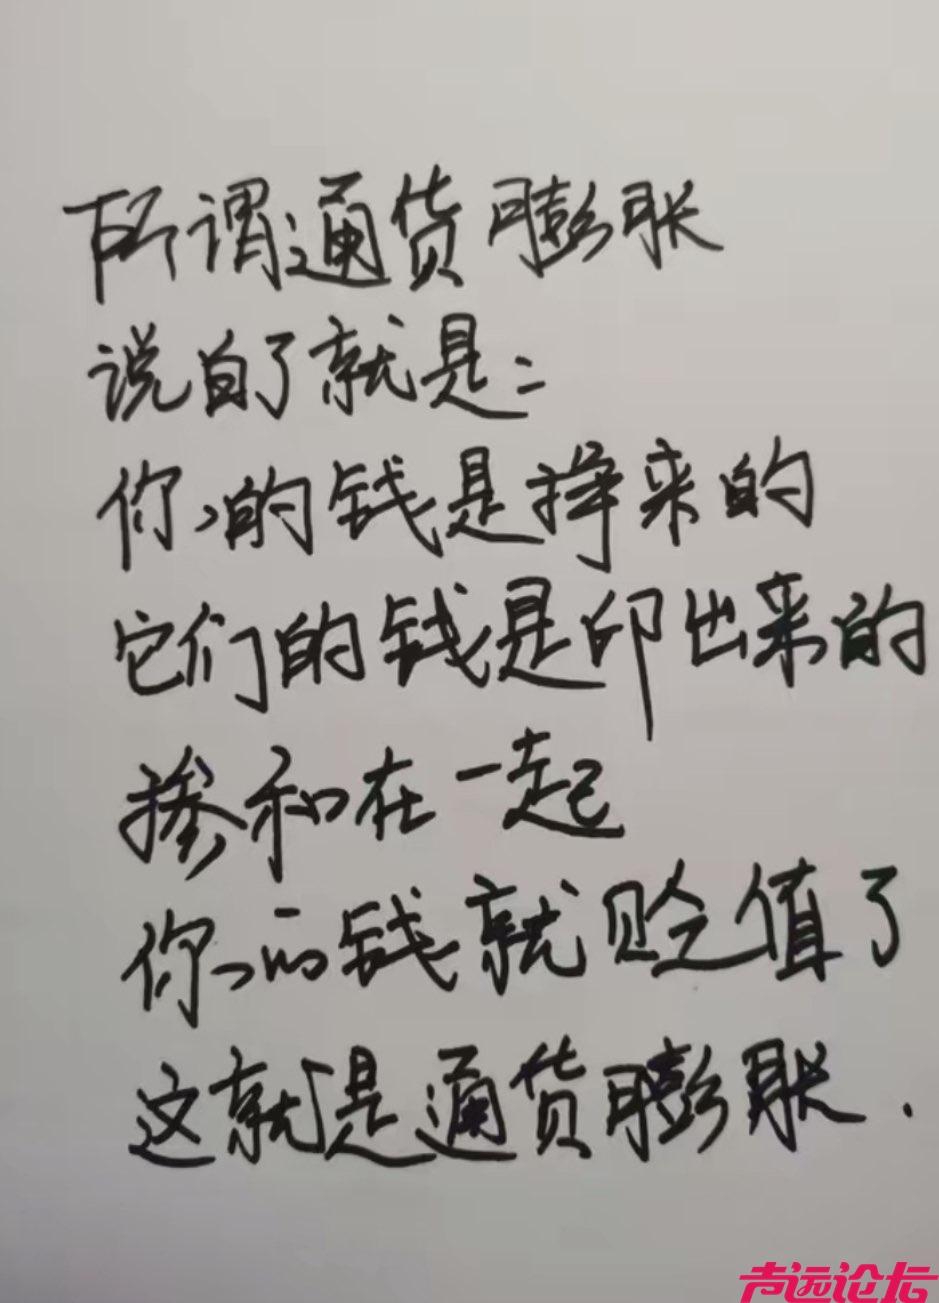 所谓通货膨胀
说白了就是：
你的钱是挣来的
它们的钱是印出来的
掺和在一起
你的钱就贬值了
这就是通货膨胀.
声远论坛